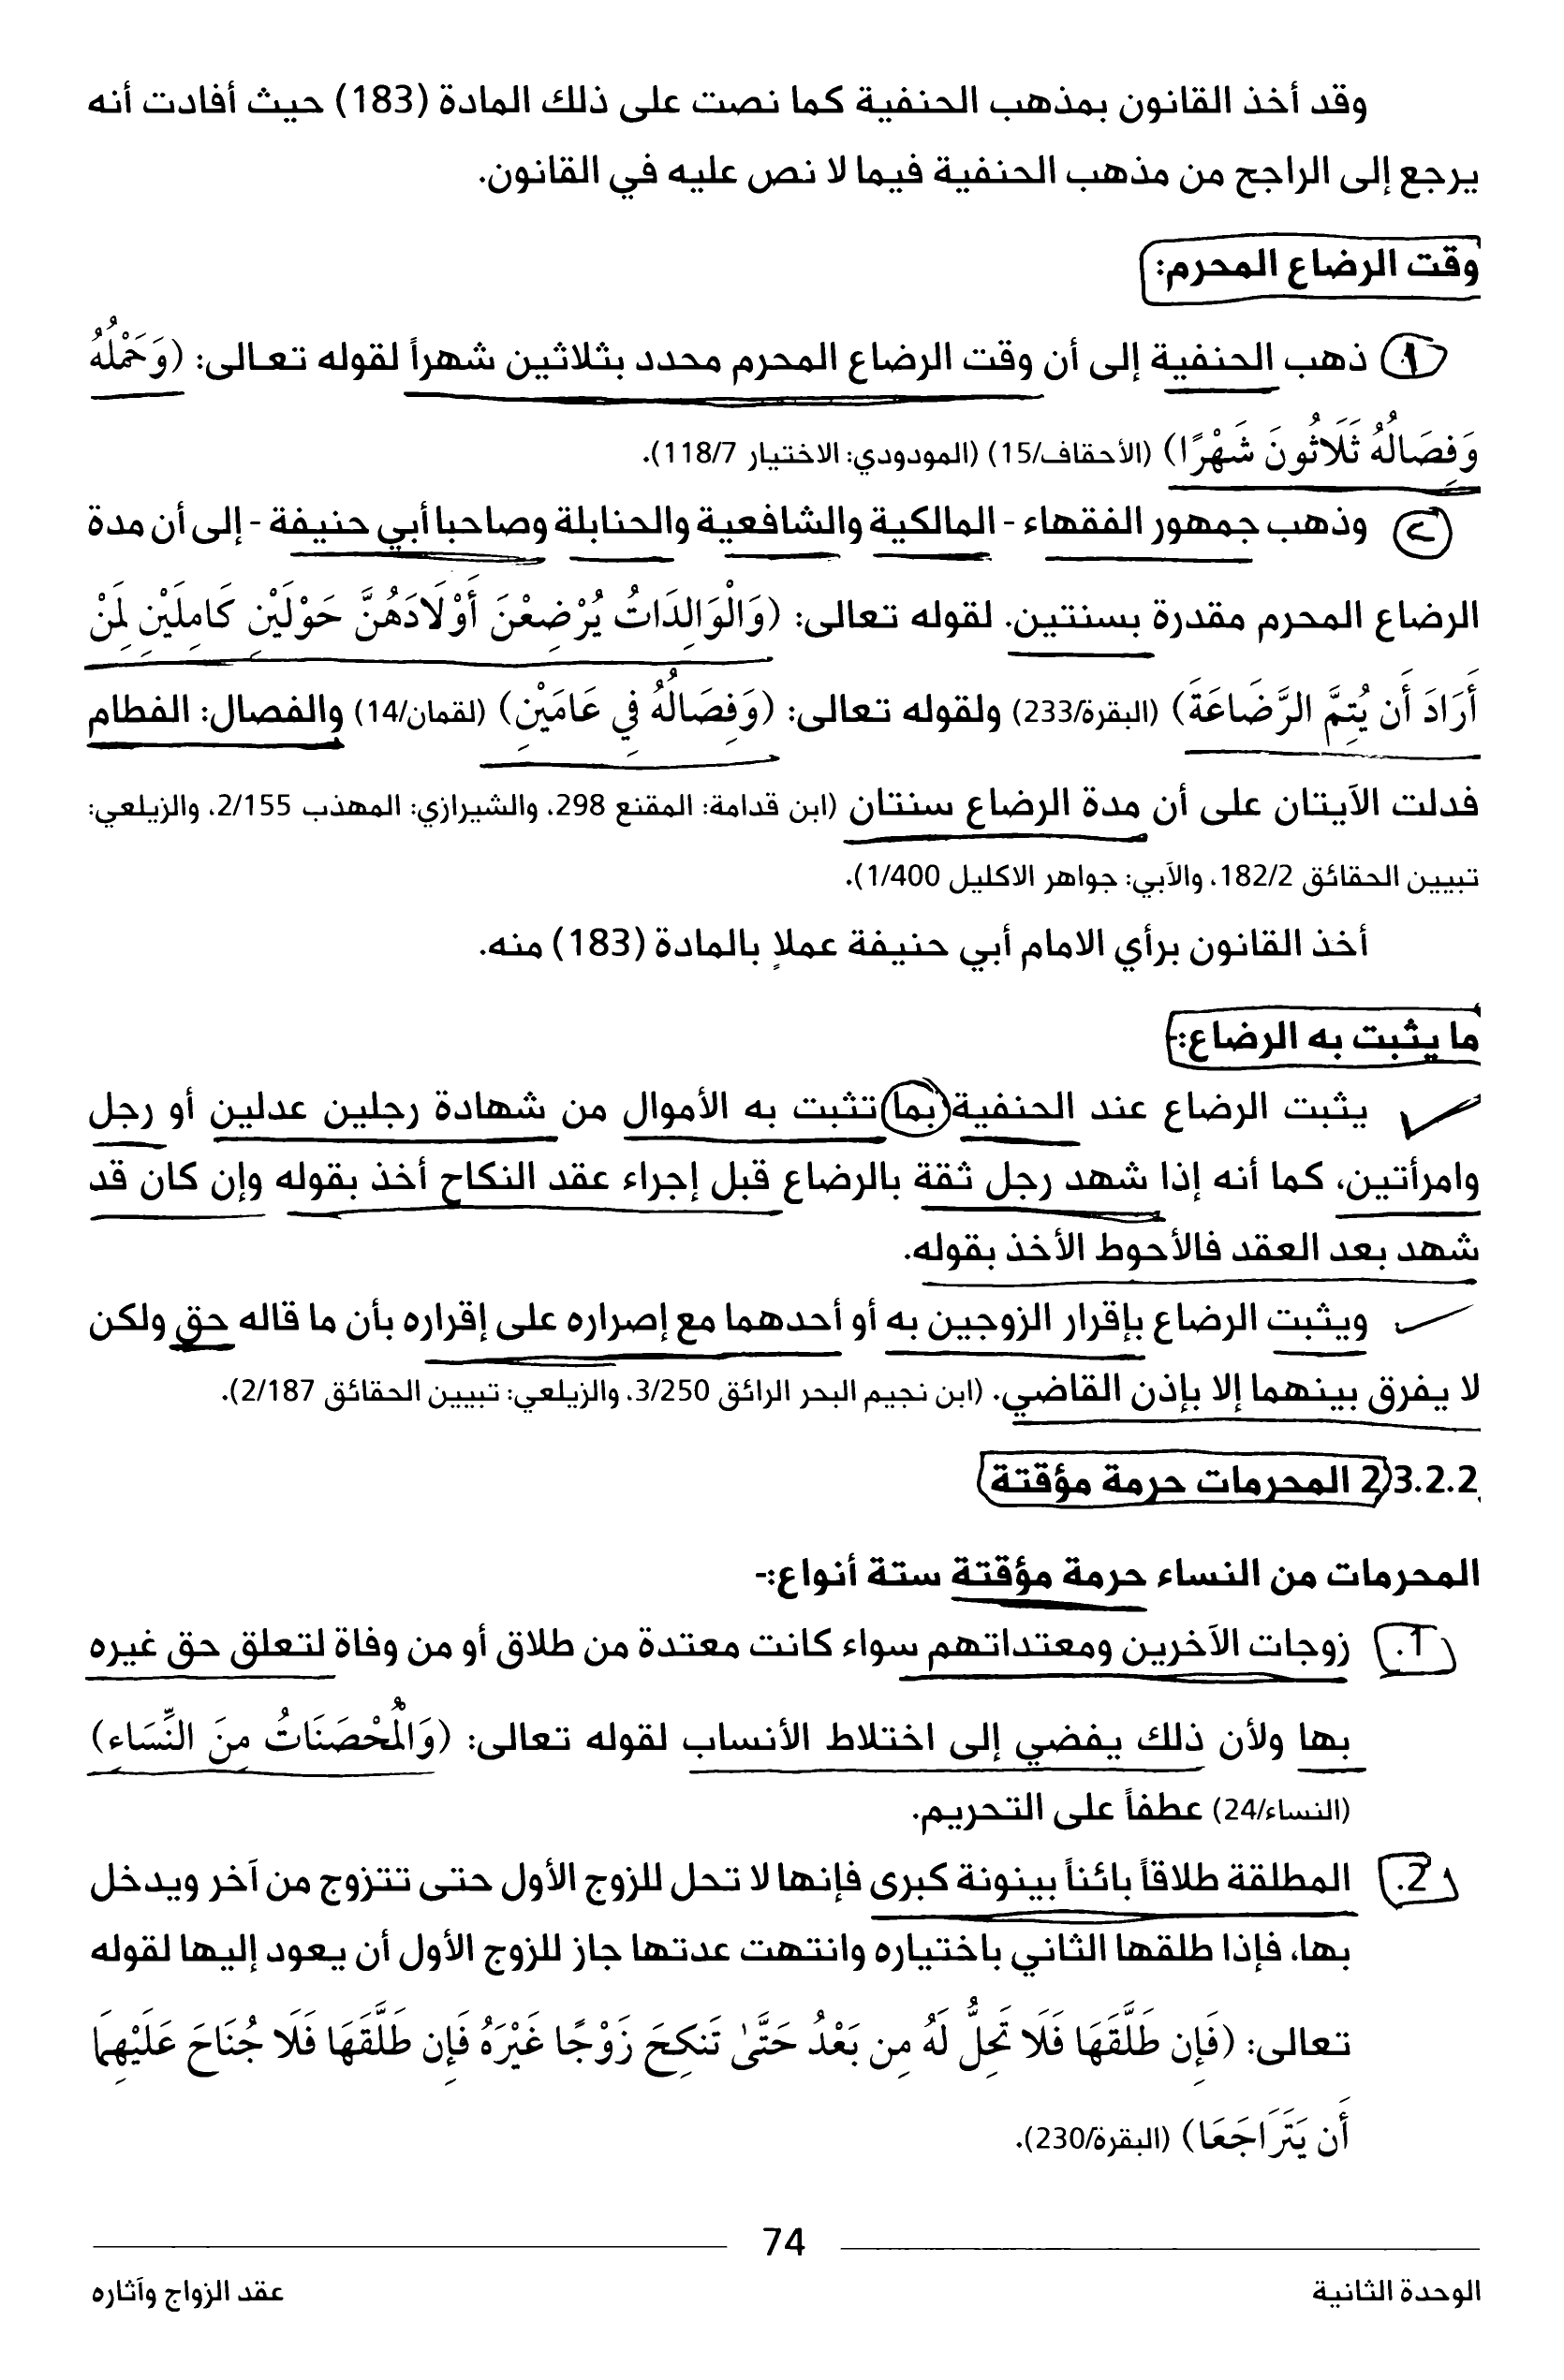 وقد أخذ القانون بمذهب الحنفية كما نصت على ذلك المادة (183) حيث أفادت أنه
يرجع إلى الراجح من مذهب الحنفية فيما لا نص عليه في القانون.
وقت الرضاع المحرم:
1 ذهب الحنفية إلى أن وقت الرضاع المحرم محدد بثلاثين شهراً لقوله تعالى: (وَحَمْلُهُ
وَفِصَالُهُ ثَلَاثُونَ شَهْرًا) (الأحقاف/15) (المودودي: الاختيار 118/7).
2 وذهب جمهور الفقهاء - المالكية والشافعية والحنابلة وصاحبا أبي حنيفة - إلى أن مدة
الرضاع المحرم مقدرة بسنتين. لقوله تعالى: (وَالْوَالِدَاتُ يُرْضِعْنَ أَوْلَادَهُنَّ حَوْلَيْنِ كَامِلَيْنِ لِمَنْ
أَرَادَ أَن يُتِمَّ الرَّضَاعَةَ) (البقرة/233) ولقوله تعالى: (وَفِصَالُهُ فِي عَامَيْنِ) (لقمان/14) والفصال: الفطام
فدلت الآيتان على أن مدة الرضاع سنتان (ابن قدامة: المقنع 298، والشيرازي: المهذب 2/155، والزيلعي:
تبيين الحقائق 182/2، والآبي: جواهر الاكليل 1/400).
أخذ القانون برأي الامام أبي حنيفة عملاٍ بالمادة (183) منه.
ما يثبت به الرضاع:-
يثبت الرضاع عند الحنفية بما تثبت به الأموال من شهادة رجلين عدلين أو رجل
وامرأتين، كما أنه إذا شهد رجل ثقة بالرضاع قبل إجراء عقد النكاح أخذ بقوله وإن كان قد
شهد بعد العقد فالأحوط الأخذ بقوله.
ويثبت الرضاع بإقرار الزوجين به أو أحدهما مع إصراره على إقراره بأن ما قاله حق ولكن
لا يفرق بينهما إلا بإذن القاضي. (ابن نجيم البحر الرائق 3/250، والزيلعي: تبيين الحقائق 2/187).
2.3.2.2 المحرمات حرمة مؤقتة
المحرمات من النساء حرمة مؤقتة ستة أنواع:-
1. زوجات الآخرين ومعتداتهم سواء كانت معتدة من طلاق أو من وفاة لتعلق حق غيره
بها ولأن ذلك يفضي إلى اختلاط الأنساب لقوله تعالى: (وَالْمُحْصَنَاتُ مِنَ النِّسَاءِ)
(النساء/24) عطفاً على التحريم.
2. المطلقة طلاقاً بائناً بينونة كبرى فإنها لا تحل للزوج الأول حتى تتزوج من آخر ويدخل
بها، فإذا طلقها الثاني باختياره وانتهت عدتها جاز للزوج الأول أن يعود إليها لقوله
تعالى: (فَإِن طَلَّقَهَا فَلَا تَحِلُّ لَهُ مِن بَعْدُ حَتَّىٰ تَنكِحَ زَوْجًا غَيْرَهُ فَإِن طَلَّقَهَا فَلَا جُنَاحَ عَلَيْهِمَا
أَن يَتَرَاجَعَا) (البقرة/230).
74
الوحدة الثانية
عقد الزواج وآثاره